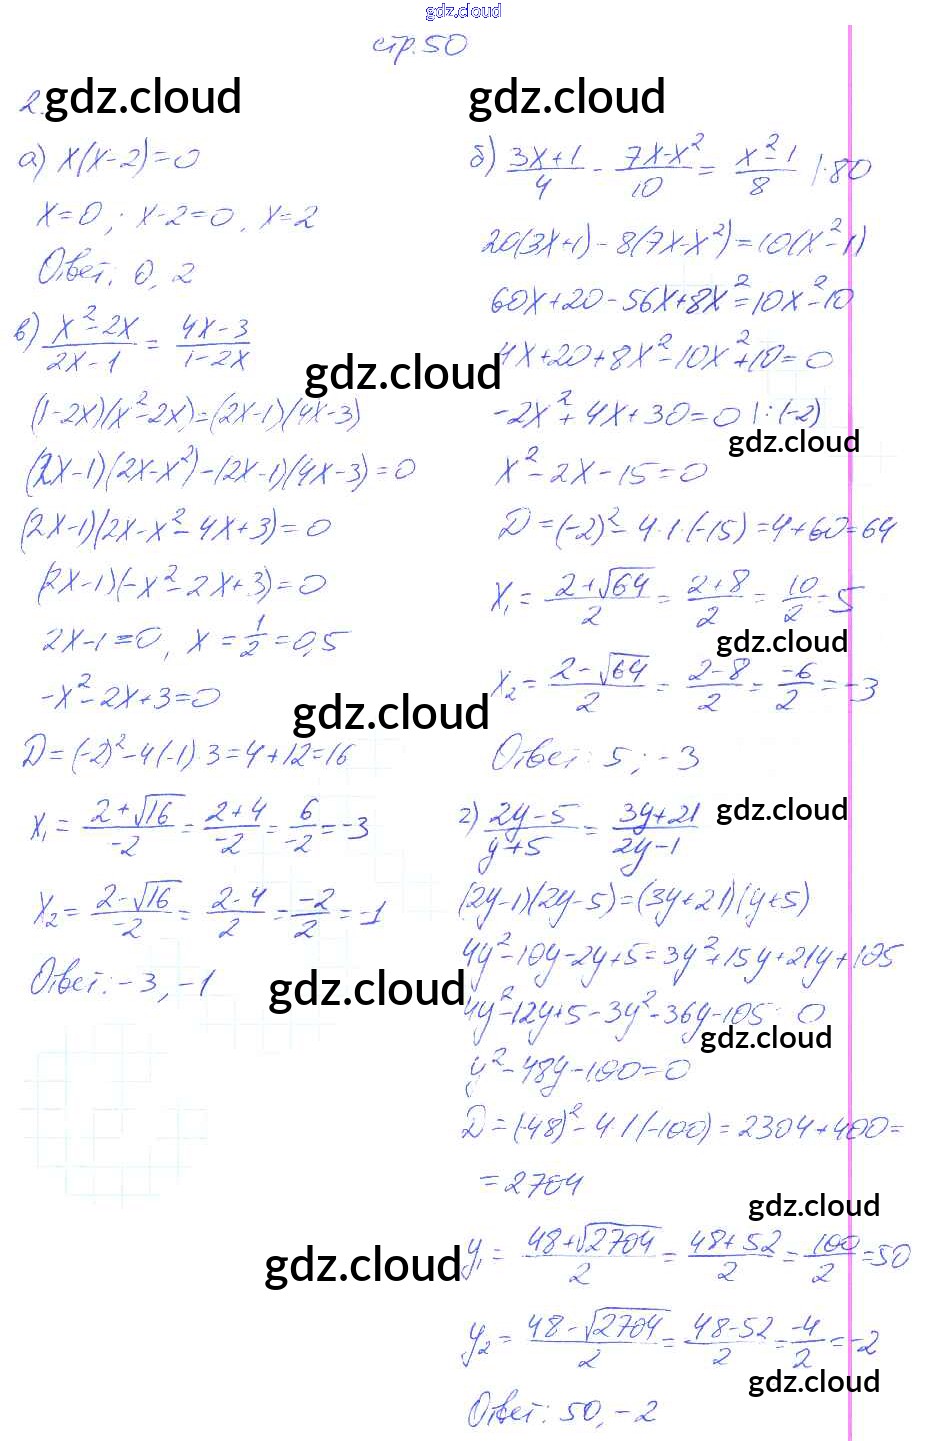 gdz.cloud
стр. 50
2. gdz.cloud
gdz.cloud
а) x(x-2)=0
x=0; x-2=0, x=2
Ответ: 0, 2
в) (x²-2x)/(2x-1) = (4x-3)/(1-2x)
gdz.cloud
(1-2x)(x²-2x)=(2x-1)(4x-3)
(2x-1)(2x-x²)-(2x-1)(4x-3)=0
(2x-1)(2x-x²-4x+3)=0
(2x-1)(-x²-2x+3)=0
2x-1=0, x = 1/2 = 0,5
-x²-2x+3=0
gdz.cloud
D=(-2)²-4(-1)·3=4+12=16
x₁ = (2+√16)/-2 = (2+4)/-2 = 6/-2 = -3
x₂ = (2-√16)/-2 = (2-4)/2 = -2/2 = -1
Ответ: -3, -1
gdz.cloud
gdz.cloud
б) (3x+1)/4 - (7x-x²)/10 = (x²-1)/8 |·80
20(3x+1)-8(7x-x²)=10(x²-1)
60x+20-56x+8x²=10x²-10
4x+20+8x²-10x²+10=0
-2x²+4x+30=0 |:(-2)
gdz.cloud
x²-2x-15=0
D=(-2)²-4·1·(-15)=4+60=64
x₁ = (2+√64)/2 = (2+8)/2 = 10/2 = 5
gdz.cloud
x₂ = (2-√64)/2 = (2-8)/2 = -6/2 = -3
Ответ: 5; -3
gdz.cloud
г) (2y-5)/(y+5) = (3y+21)/(2y-1)
(2y-1)(2y-5)=(3y+21)(y+5)
4y²-10y-2y+5=3y²+15y+21y+105
4y²-12y+5-3y²-36y-105=0
gdz.cloud
y²-48y-100=0
D=(-48)²-4·1(-100)=2304+400=
=2704
gdz.cloud
y₁ = (48+√2704)/2 = (48+52)/2 = 100/2 = 50
y₂ = (48-√2704)/2 = (48-52)/2 = -4/2 = -2
gdz.cloud
Ответ: 50, -2